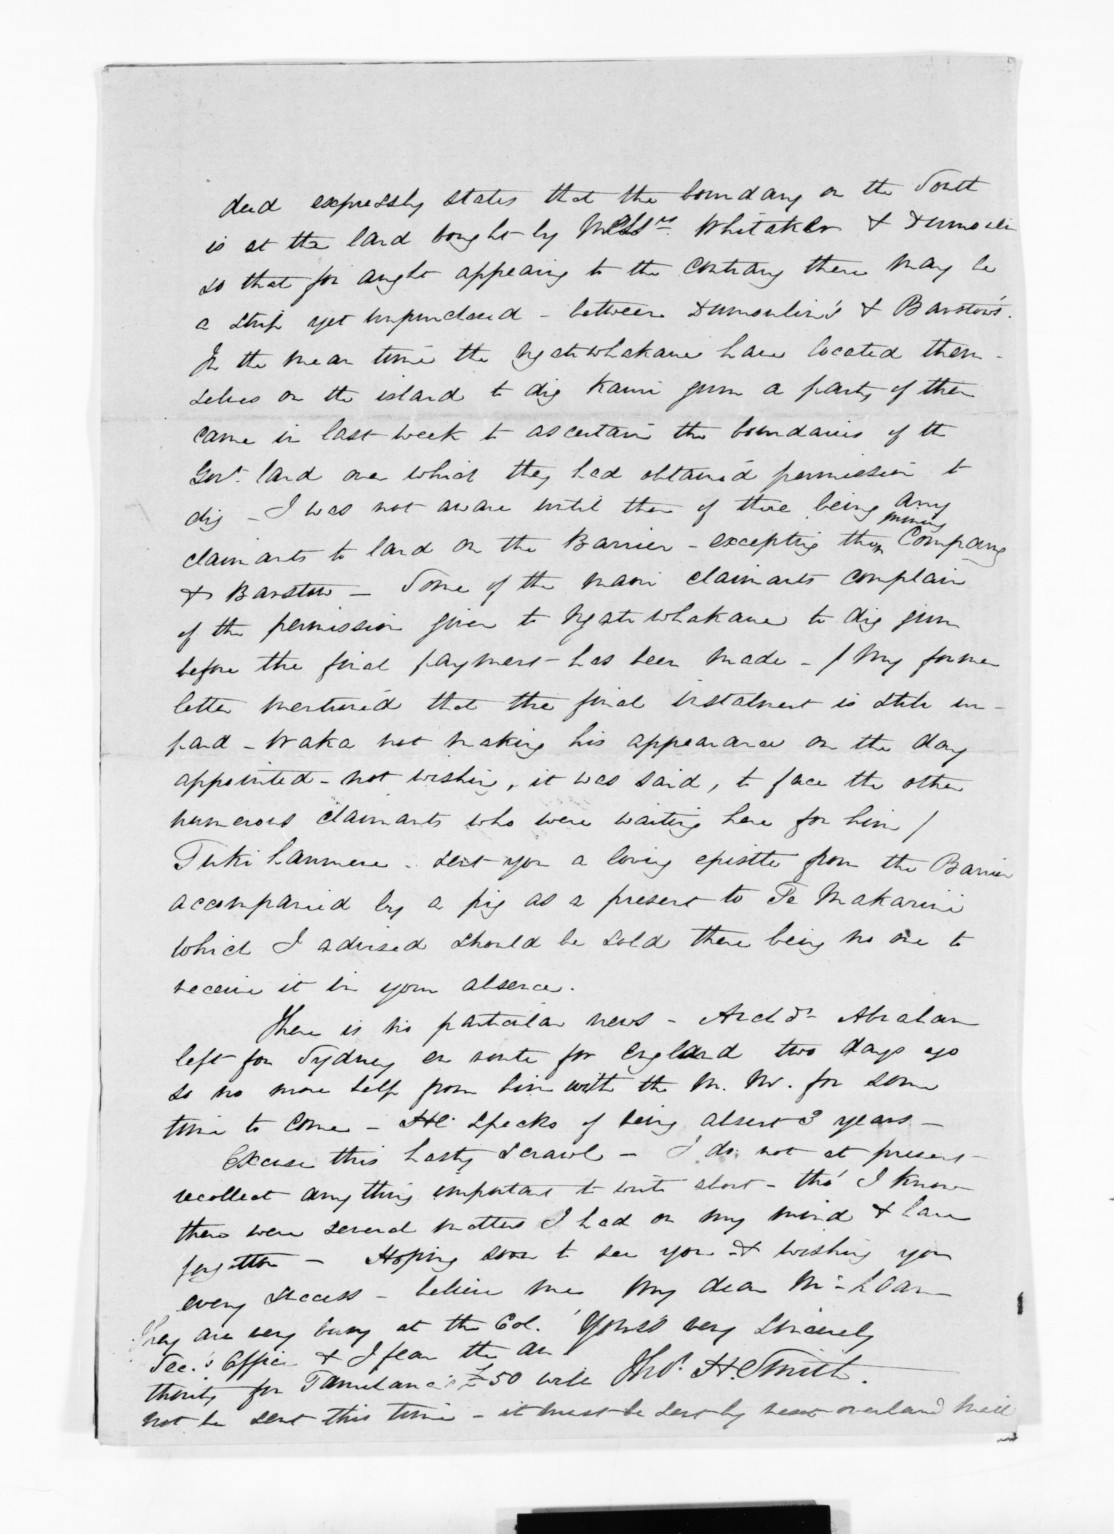 deed expressly states that the boundary on the South
is at the land bought by Messrs. Whitaker & Dumoulin
so that for aught appearing to the contrary there may be
a strip yet unpurchased - between Dumoulin's & Barstow's.
In the mean time the Ngatiwhakaue have located them-
selves on the island to dig Kauri gum a party of them
came in last week to ascertain the boundaries of the
Govt. land over which they had obtained permission to
dig - I was not aware until then of there being any
claimants to land on the Barrier - excepting the mining Company
& Barstow - Some of the Maori claimants complain
of the permission given to Ngatiwhakaue to dig gum
before the final payment has been made - / My former
letter mentioned that the final instalment is still un-
paid - Waka not making his appearance on the day
appointed - not wishing, it was said, to face the other
numerous claimants who were waiting here for him /
sent you a loving epistle from the Barrier
accompanied by a pig as a present to Te Makarini
which I advised should be sold there being no one to
receive it in your absence.
There is no particular news - Archdn Abraham
left for Sydney en route for England two days ago
so no more help from him with the M. M. for some
time to come - He speaks of being absent 3 years -
Excuse this hasty scrawl - I do not at present
recollect any thing important to write about - tho' I know
there were several matters I had on my mind & have
forgotten - Hoping soon to see you & wishing you
every success - believe me My dear McLean
Yours very sincerely
Thos. H. Smith.
They are very busy at the Col.
Sec.'s Office & I fear the au
thority for £50 will
not be sent this time - it must be sent by next overland Mail